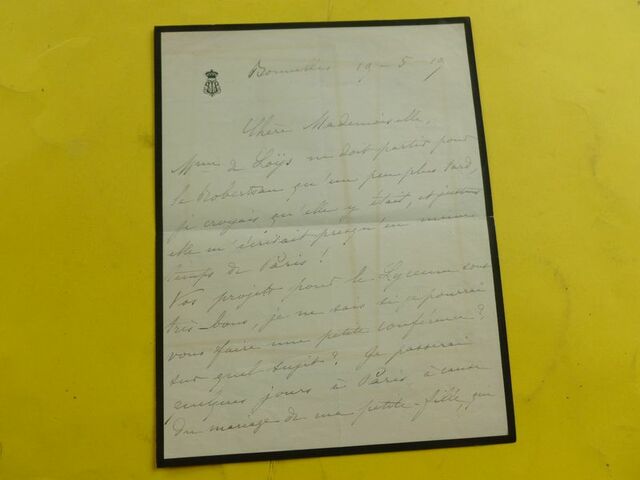 Bonnelles 19-5-19
Chère Mademoiselle,
Mme de Loÿs ne doit partir pour
le Robertsau qu'un peu plus tard,
je croyais qu'elle y était, et justement
elle m'écrivait presqu'en même
temps de Paris !
Vos projets pour le Lyceum sont
très-bons, je ne sais si je pourrai
vous faire une petite conférence ?
sur quel sujet ? Je passerai
quelques jours à Paris à cause
du mariage de ma petite-fille, qui